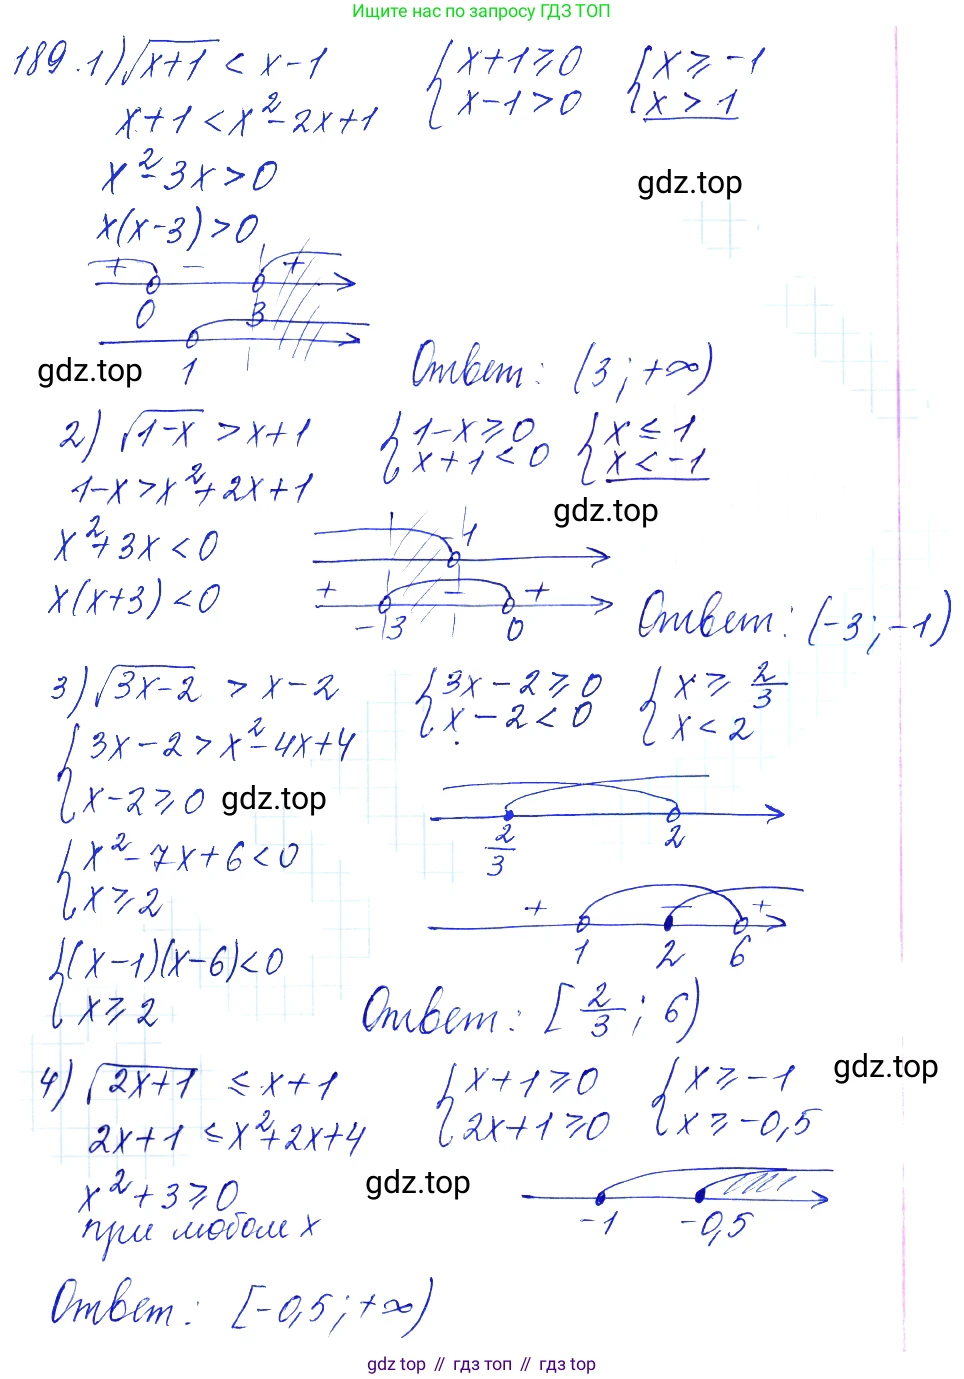 Ищите нас по запросу ГДЗ ТОП
189.1) √(x+1) < x-1   { x+1≥0   { x≥-1
{ x-1>0   { x>1
x+1 < x²-2x+1
x²-3x>0
gdz.top
x(x-3)>0
+ - +
0 3
gdz.top
1
Ответ: (3;+∞)
2) √(1-x) > x+1   { 1-x≥0   { x≤1
{ x+1<0   { x<-1
1-x>x²+2x+1
gdz.top
x²+3x<0
-1
x(x+3)<0
+ - +
-3 0
Ответ: (-3;-1)
3) √(3x-2) > x-2   { 3x-2≥0   { x≥2/3
{ x-2<0   { x<2
{ 3x-2>x²-4x+4
{ x-2≥0
gdz.top
2/3 2
{ x²-7x+6<0
{ x≥2
+ - +
1 2 6
{ (x-1)(x-6)<0
{ x≥2
Ответ: [2/3; 6)
4) √(2x+1) ≤ x+1   { x+1≥0   { x≥-1
gdz.top
{ 2x+1≥0   { x≥-0,5
2x+1 ≤ x²+2x+4
x²+3≥0
gdz.top
-1 -0,5
при любом x
Ответ: [-0,5;+∞)
gdz top // гдз топ // gdz top